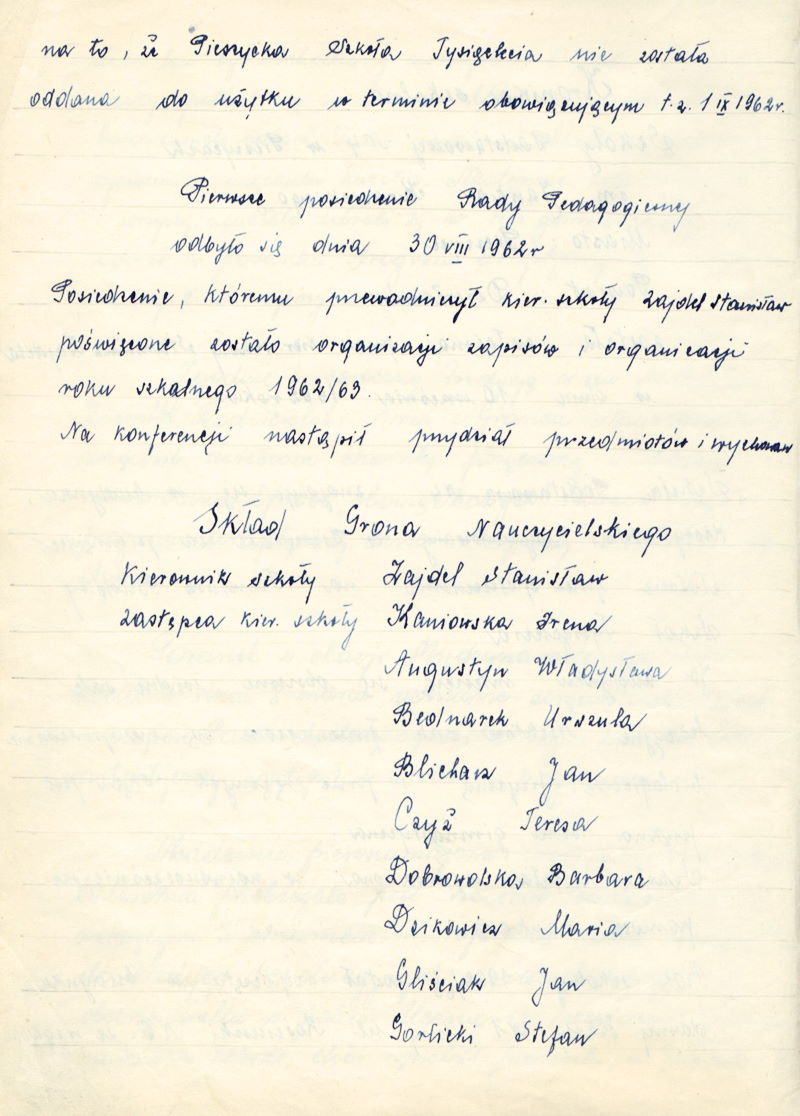 na to, że Pieszycka Szkoła Tysiąclecia nie została
oddana do użytku w terminie obowiązującym t.z. 1 IX 1962r.
Pierwsze posiedzenie Rady Pedagogicznej
odbyło się dnia 30 VIII 1962r
Posiedzenie, któremu przewodniczył kier. szkoły Zajdel Stanisław
poświęcone zostało organizacji zapisów i organizacji
roku szkolnego 1962/63.
Na konferencji nastąpił przydział przedmiotów i wychow
Skład Grona Nauczycielskiego
Kierownik szkoły Zajdel Stanisław
zastępca kier. szkoły Kaniowska Irena
Augustyn Władysława
Bednarek Urszula
Blicharz Jan
Czyż Teresa
Dobrowolska Barbara
Dzikowicz Maria
Gliściak Jan
Gorlicki Stefan